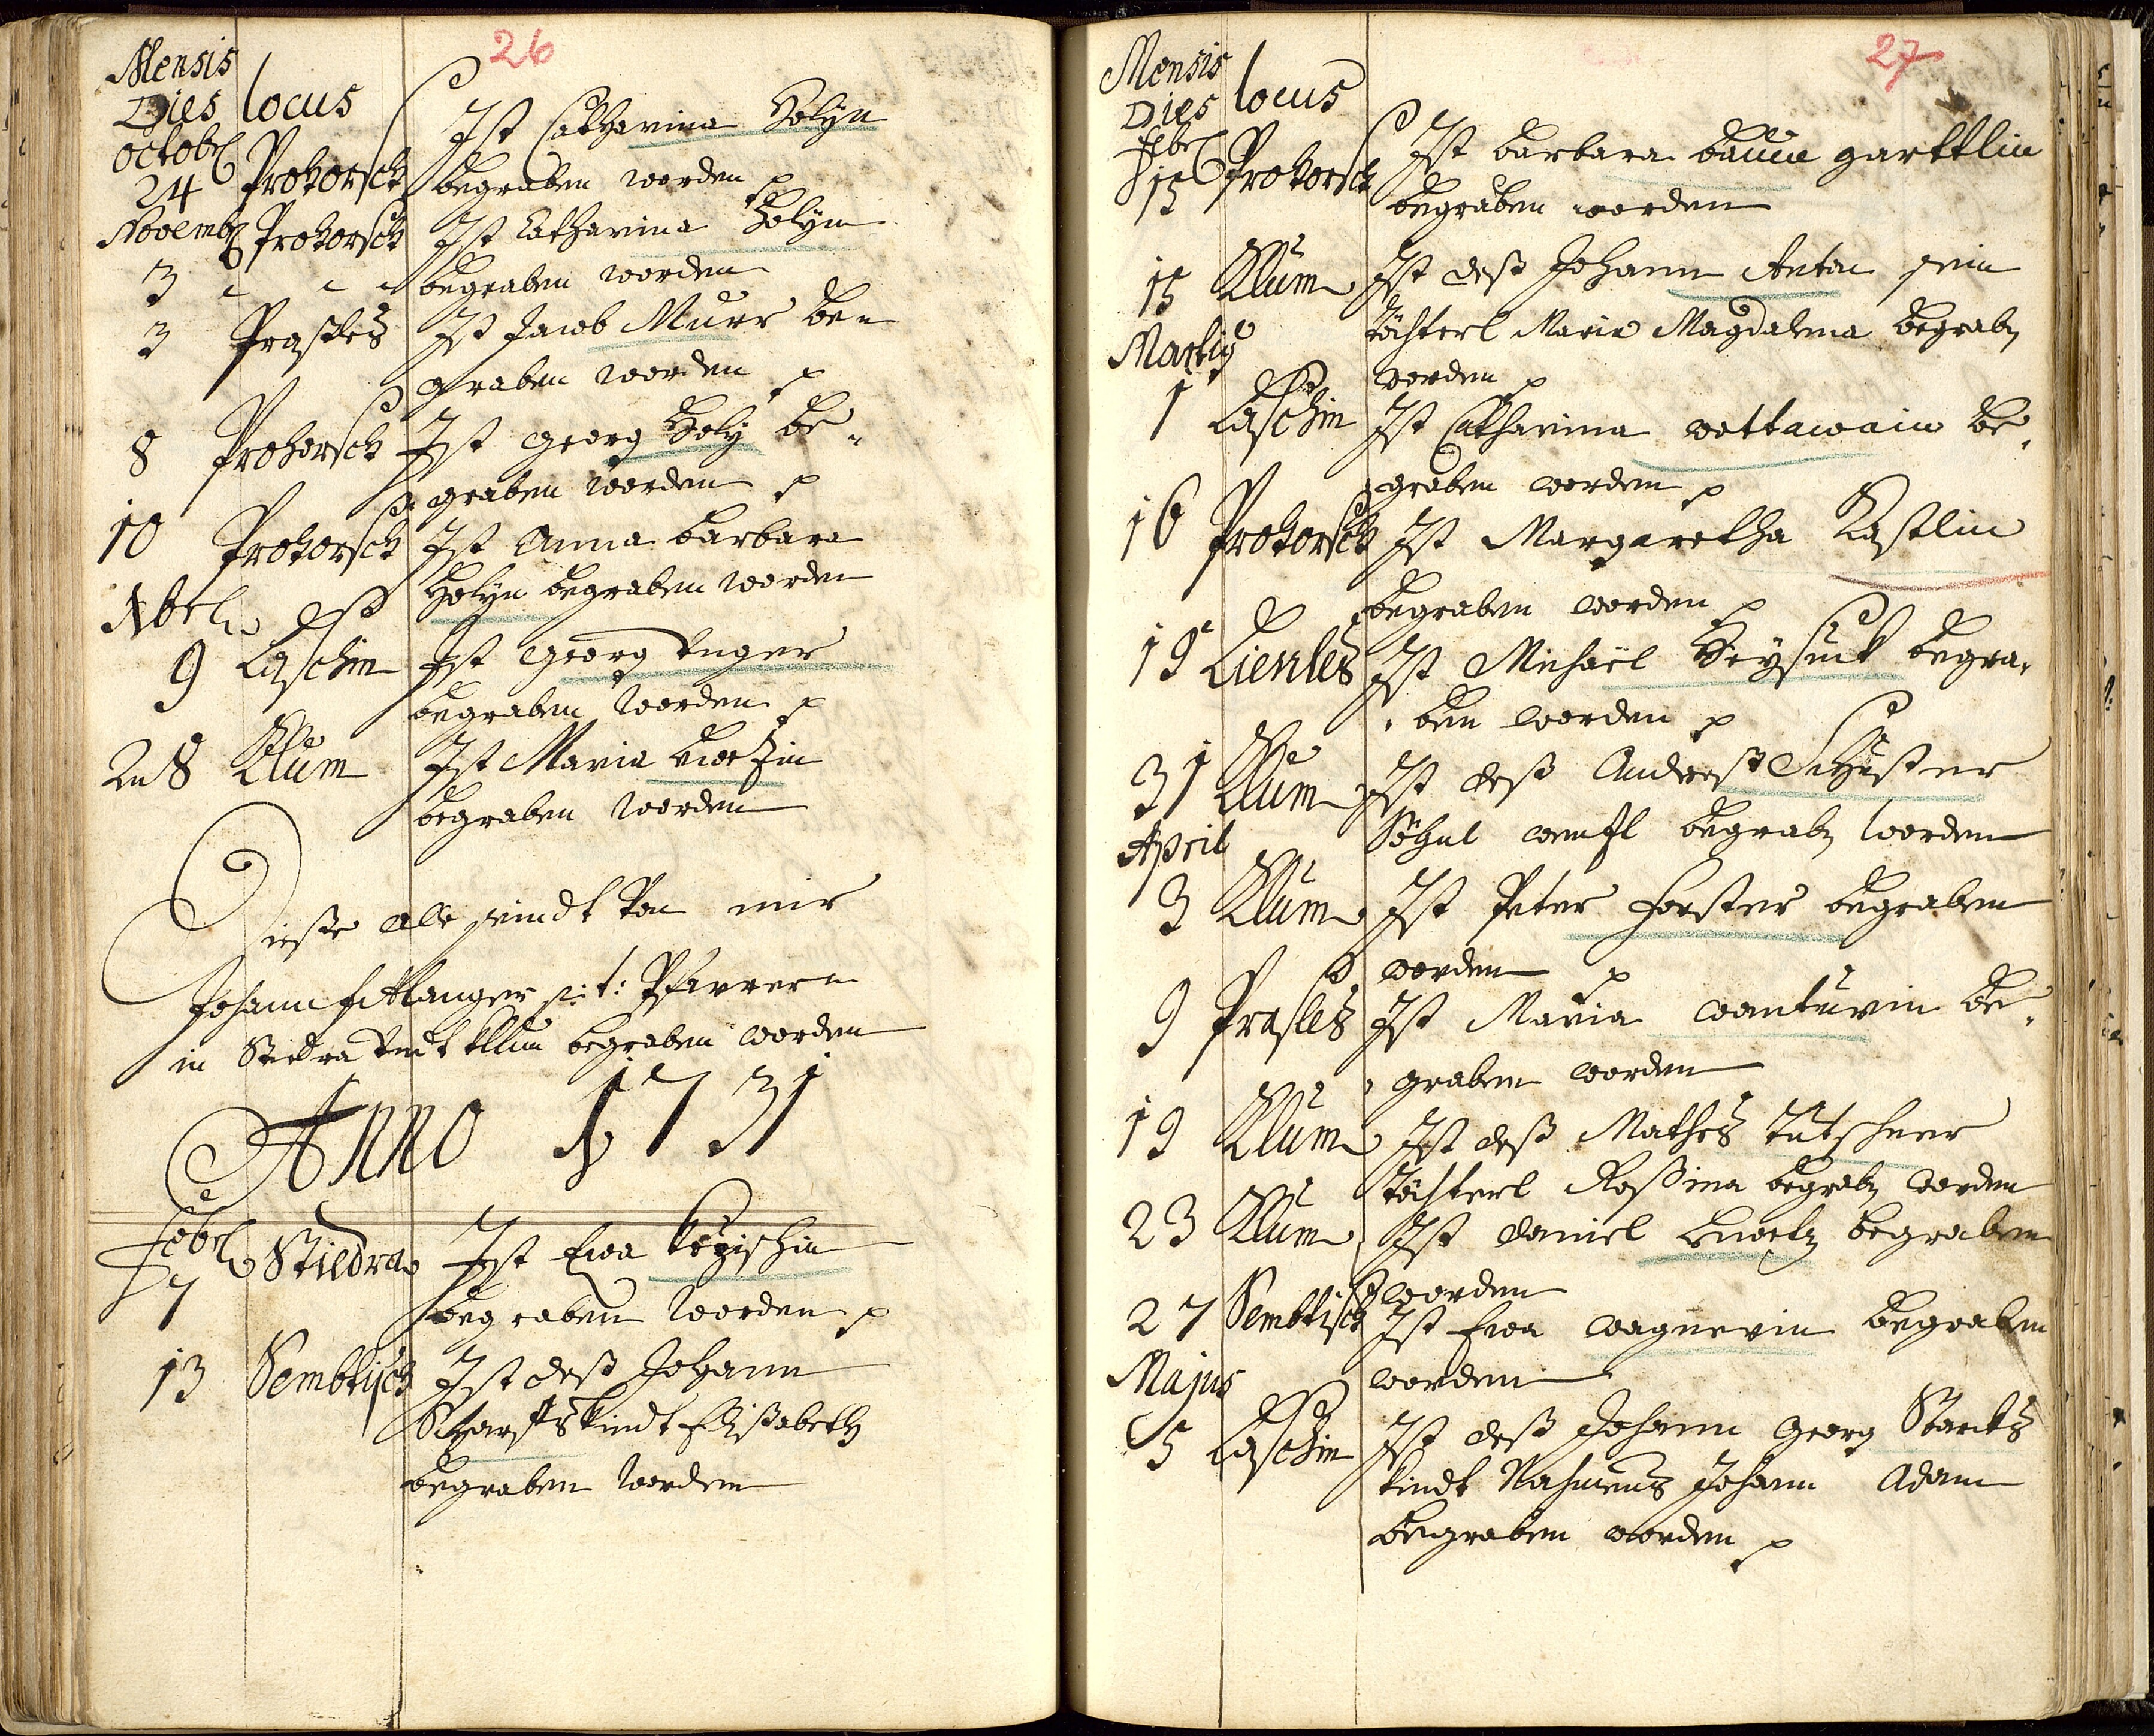 26
Mensis
Dies locus
Octobr
24 Prohorsch Ist Catharina Holÿn
begraben worden
Novemb Prohorsch Ist Catharina Holÿn
3 begraben worden
3 Prasles Ist Jacob Murr be=
graben worden
8 Prohorsch Ist Georg Holÿ be=
graben worden
10 Prohorsch Ist Anna Barbara
Holÿn begraben worden
9 Laschin Ist Georg Unger
begraben worden
28 Klum Ist Maria
begraben worden
Dieße alle seindt von mir
Johann p: t: Pfarrern
in Stiedra undt Klum begraben worden
Anno 1731
Febr
7 Stiedra Ist Eva
begraben worden
13 Sembtisch Ist deß Johann
kindt Elisabeth
begraben worden
27
Mensis
Dies locus
Febr
15 Prohorsch Ist Barbara garttlin
begraben worden
15 Klum Ist deß Johann Anton sein
töchterl Maria Magdalena begrabn
worden
Martÿ
1 Laschin Ist Catharina wottawain be=
graben worden
16 Prohorsch Ist Margaretha Kastlin
begraben worden
19 Lienles Ist Michaël begra=
ben worden
31 Klum Ist deß Andreß Schuster
Söhnl wentzl begrabn worden
April
3 Klum Ist Peter Forster begraben
worden
9 Prasles Ist Maria be=
graben worden
19 Klum Ist deß Mathes Tutschner
töchterl Roßina begrabn worden
23 Klum Ist Daniel begraben
worden
27 Sembtisch Ist Eva wagnerin begraben
worden
Majus
5 Laschin Ist deß Johann Georg Starcks
kindt Nahmens Johann Adam
begraben worden